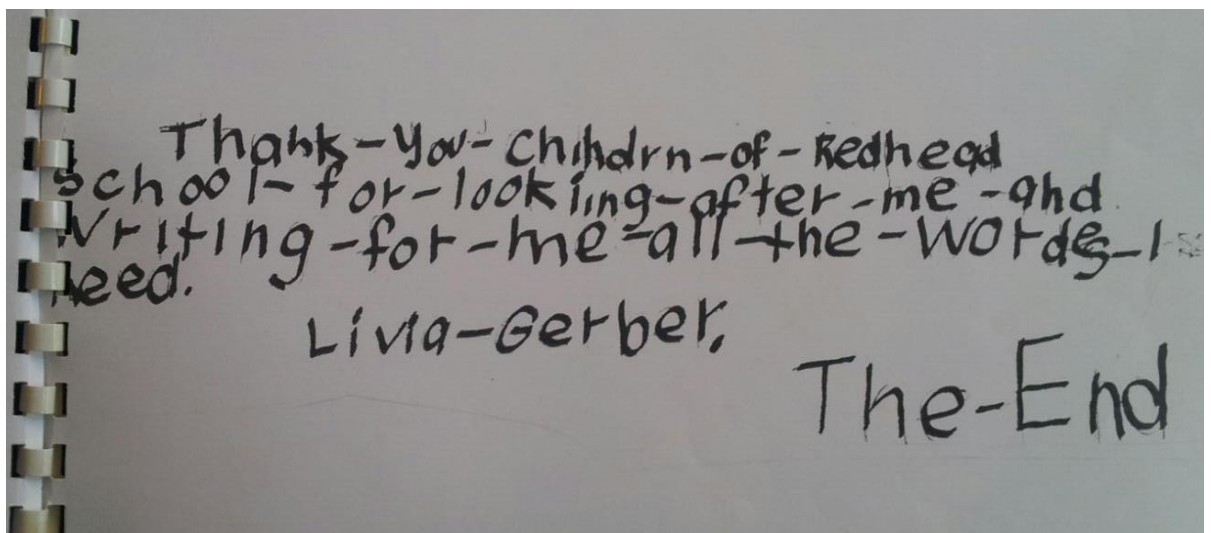 Thank-you-chihdrn-of-Redhead
school-for-looking-after-me-and
Writing-for-me-all-the-wordes-I
need.
Livia-Gerber.
The-End